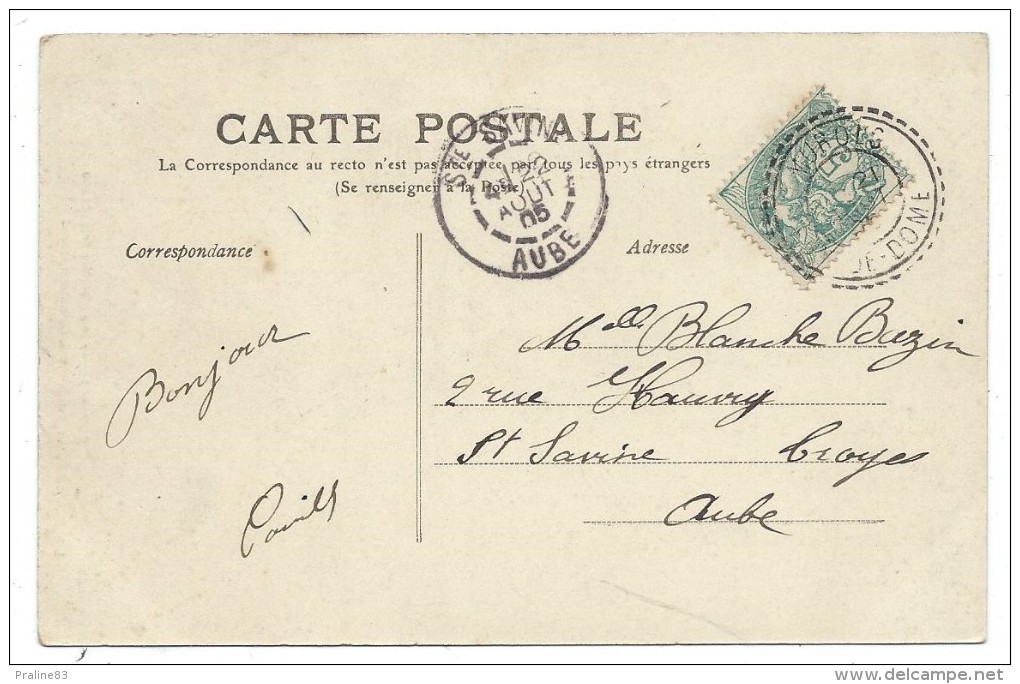 CARTE POSTALE
La Correspondance au recto n'est pas acceptée par tous les pays étrangers
(Se renseigner à la Poste)
Correspondance
Adresse
STE SAVINE
22
AOUT
05
AUBE
MUROLS
21
DE-DOME
Bonjour
Melle Blanche Bazin
2 rue Hauvry
St Savine Troyes
Aube
Praline83
delcampe.net